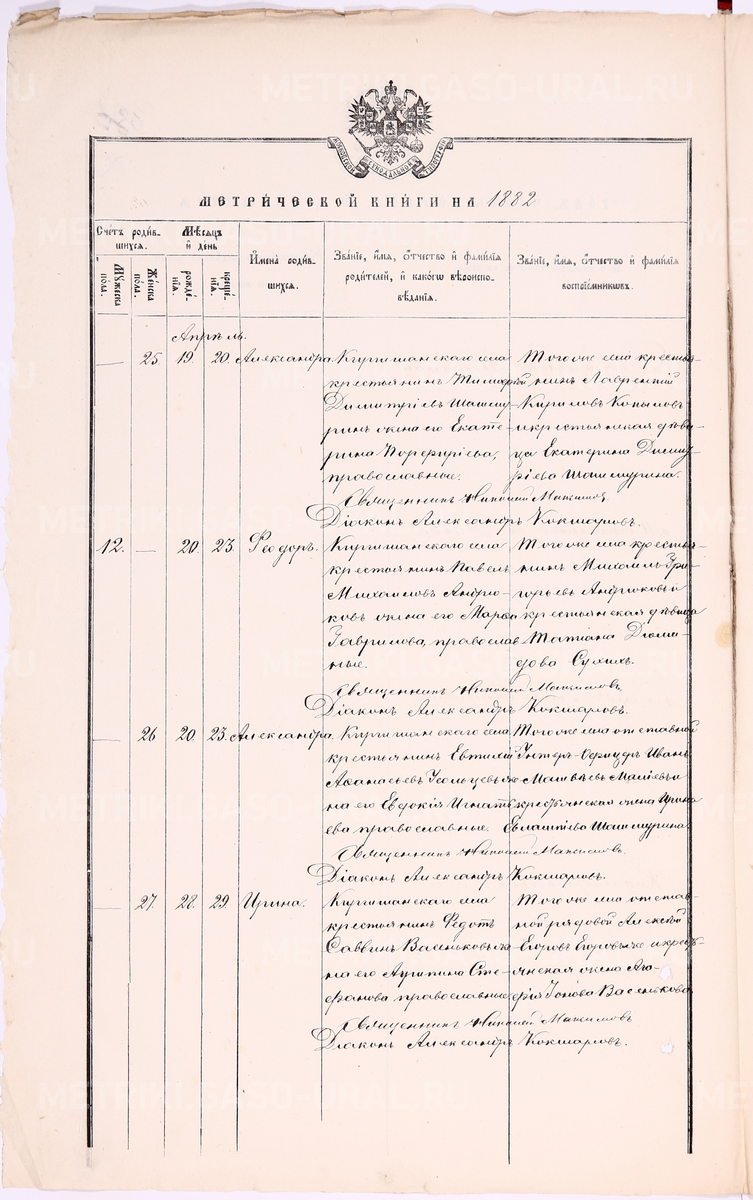 МЕТРИЧЕСКОЙ КНИГИ НА 1882
Счетъ родив-
шихся.
Мужеска пола.
Женска пола.
Мѣсяцъ
и день
рожде-
нія.
креще-
нія.
Имена родив-
шихся.
Званіе, имя, отчество и фамилія
родителей, и какого вѣроиспо-
вѣданія.
Званіе, имя, отчество и фамилія
воспріемниковъ.
Апрѣль.
— 25. 19. 20. Александра.
Киргишанскаго села
крестьянинъ Тимофей
Димитріевъ Шашму-
ринъ и жена его Екате-
рина Порфиріева,
православные.
Того же села крестья-
нинъ Лаврентій
Кириловъ Копыловъ
и крестьянская дѣви-
ца Екатерина Димит-
ріева Шашмурина.
Священникъ Николай Максимовъ
Діаконъ Александръ Кокшаровъ.
12. — 20. 23. Ѳеодоръ.
Киргишанскаго села
крестьянинъ Павелъ
Михаиловъ Андрю-
ковъ и жена его Марѳа
Гаврилова, православ
ные.
Того же села крестья-
нинъ Михаилъ Гри-
горьевъ Андрюковъ и
крестьянская дѣвица
Татіана
Сухихъ.
Священникъ Николай Максимовъ
Діаконъ Александръ Кокшаровъ.
— 26 20. 23. Александра.
Киргишанскаго села
крестьянинъ Евтихій
Аѳанасьевъ и же
на его Евдокія Игнать
ева православные.
Того же села отставной
Унтеръ-Офицеръ Иванъ
Матвѣевъ
крестьянская жена Ирина
Евлампіева Шашмурина.
Священникъ Николай Максимовъ
Діаконъ Александръ Кокшаровъ.
— 27. 28. 29. Ирина.
Киргишанскаго села
крестьянинъ Ѳедотъ
Саввинъ Васеньковъ и же
на его Агрипина Сте-
фанова православные
Того же села отстав-
ной рядовой Алексѣй
Егоровъ Егоровыхъ и кресть-
янская жена Ага-
фія Іонова Васенькова
Священникъ Николай Максимовъ
Діаконъ Александръ Кокшаровъ.
METRIKI.GASO-URAL.RU